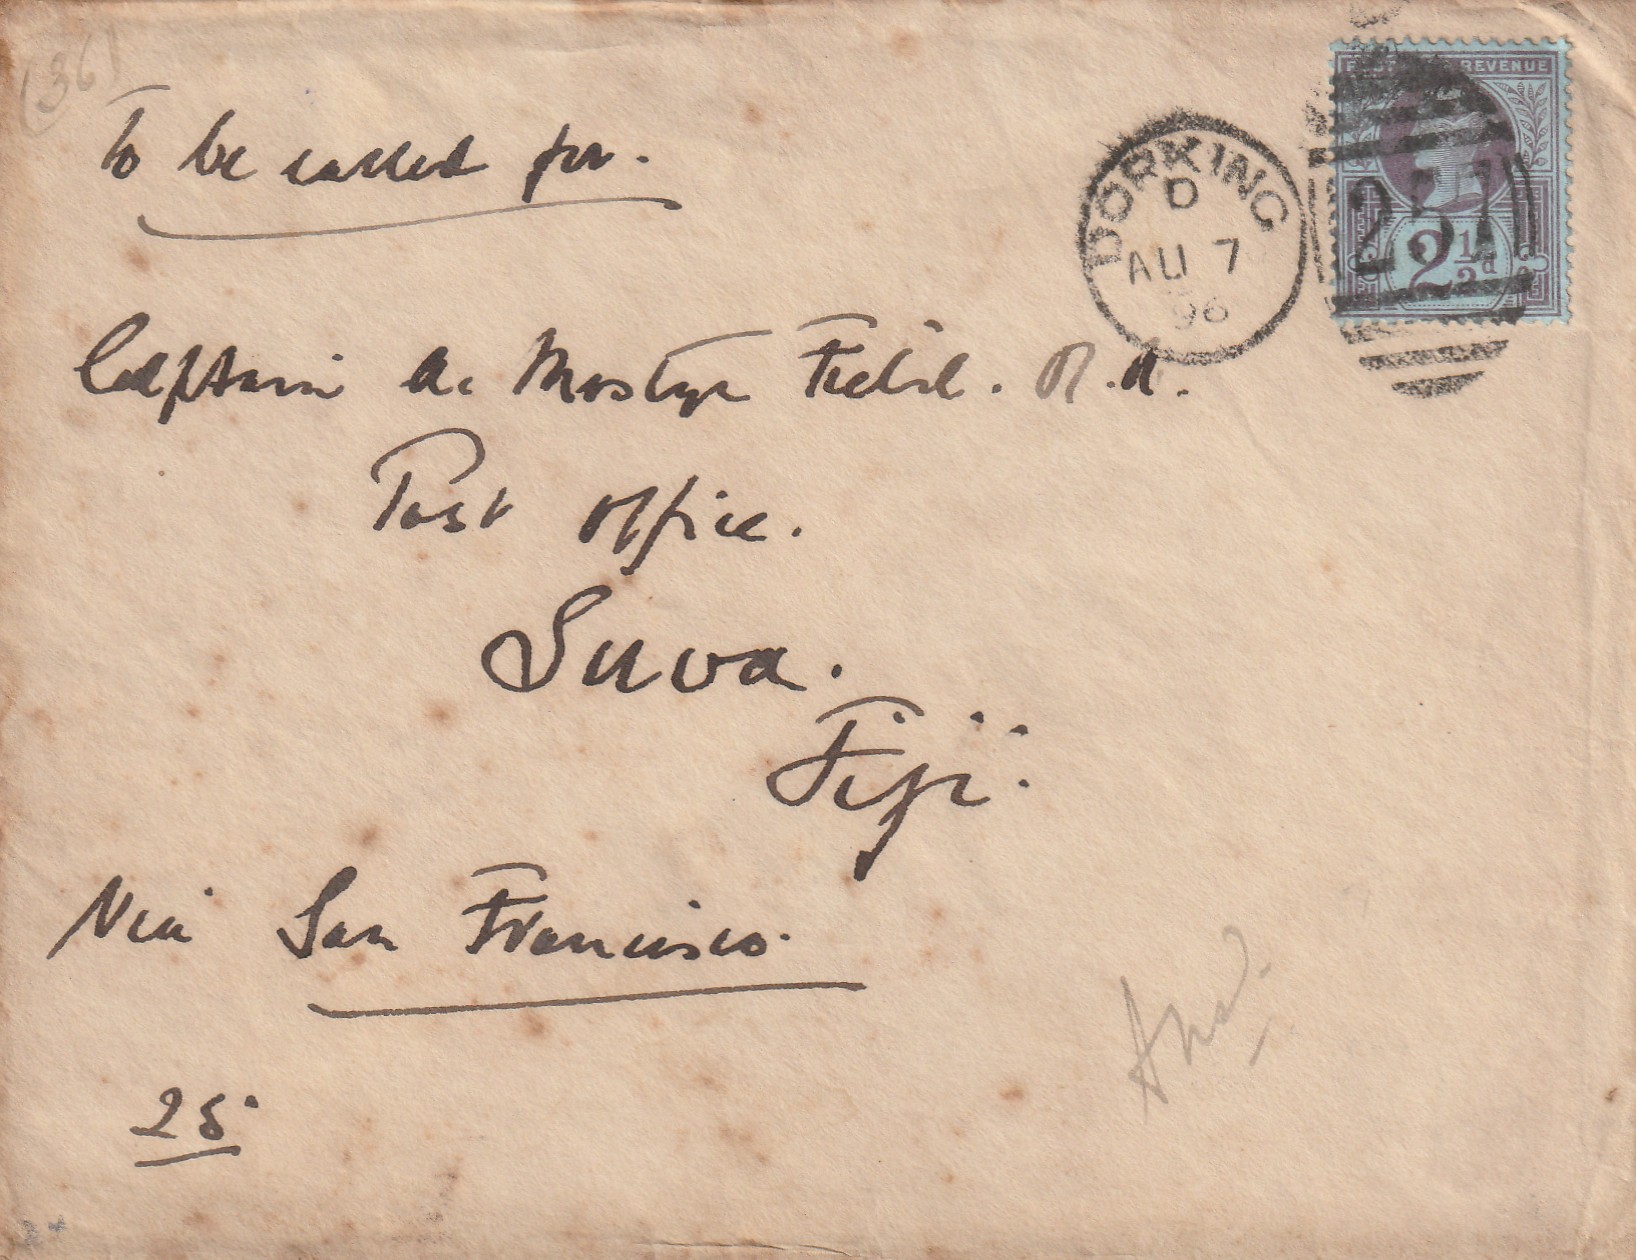 (36)
To be called for.
POSTAGE & REVENUE
DORKING
D
AU 7
96
2½d
Captain A. Mostyn Field. R.N.
Post Office.
Suva.
Fiji.
Via San Francisco.
25
Ansd.